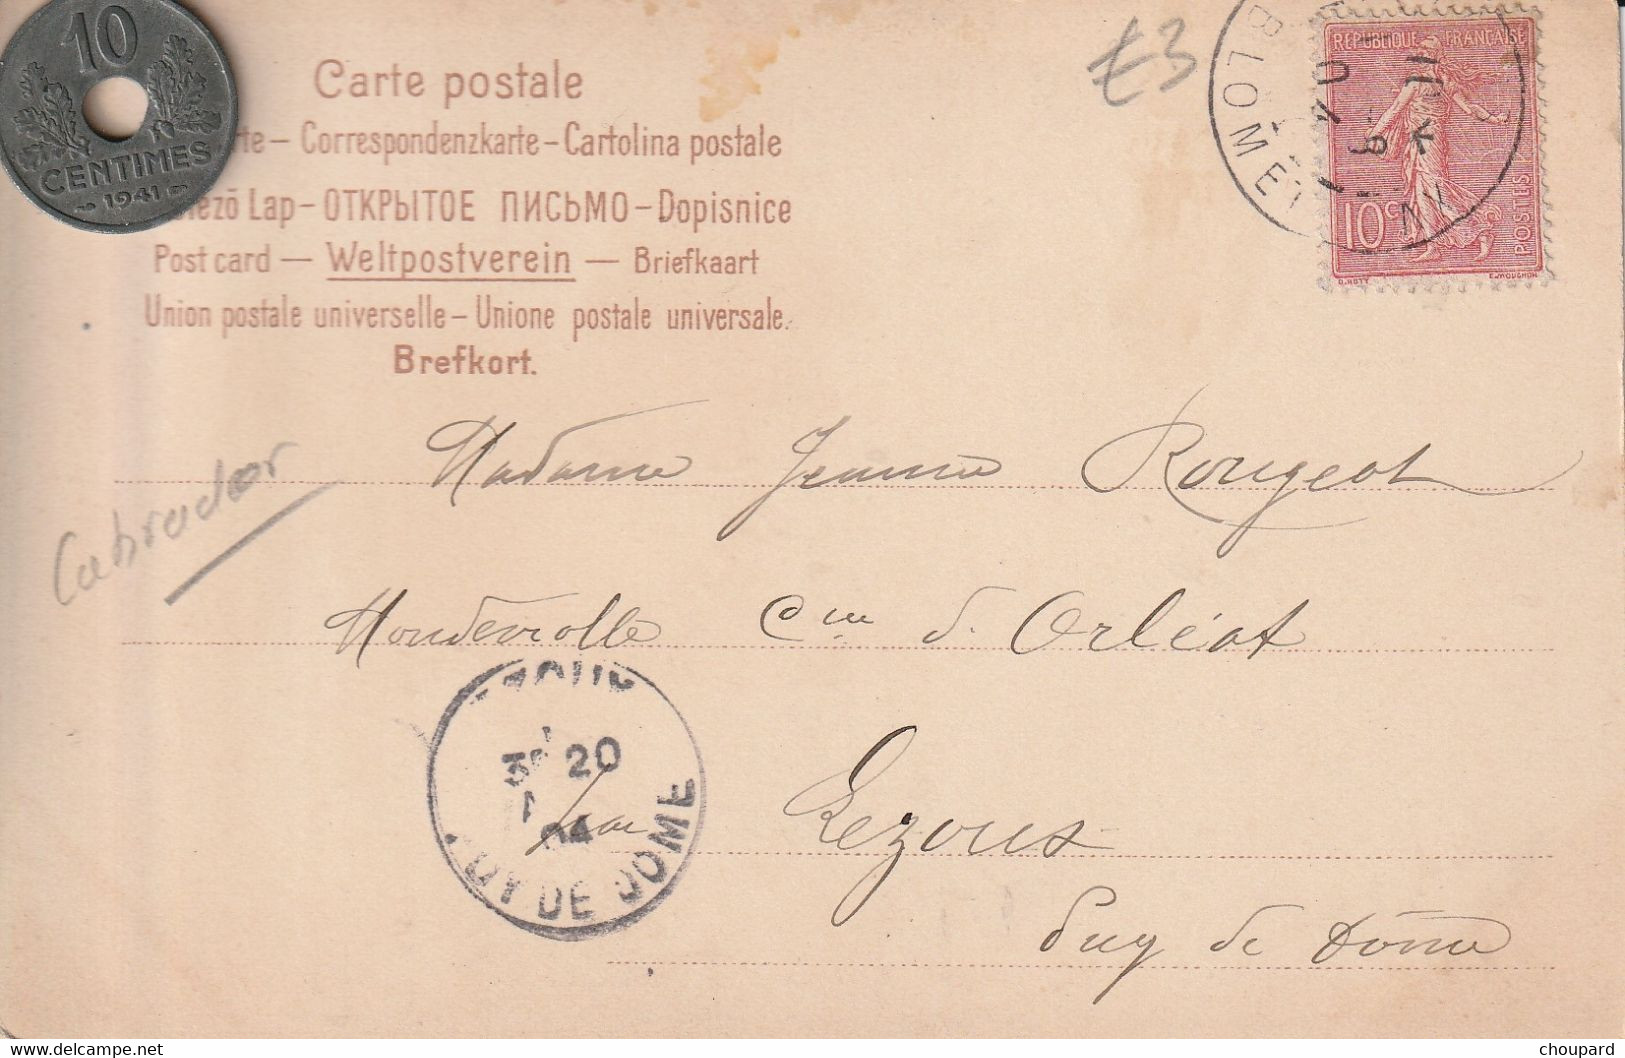 10
CENTIMES
1941
Carte postale
Correspondenzkarte – Cartolina postale
Lap – ОТКРЫТОЕ ПИСЬМО – Dopisnice
Post card — Weltpostverein — Briefkaart
Union postale universelle – Unione postale universale.
Brefkort.
£3
BLOMET
04
REPUBLIQUE FRANÇAISE
10c
POSTES
O.ROTY
E.MOUCHON
Madame Jeanne Rougeot
Cne d'Orléat
Labrador
par Lezoux
Puy de Dôme
3E 20
04
PUY DE DOME
www.delcampe.net
choupard